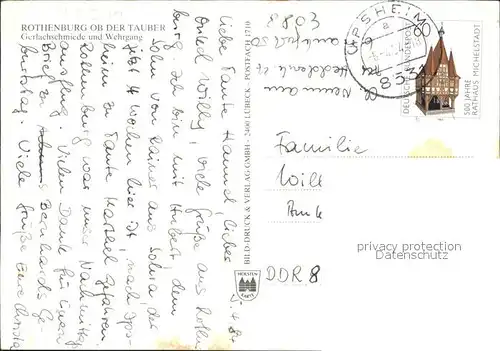 ROTHENBURG OB DER TAUBER
Gerlachschmiede und Wehrgang
5.4.84
Liebe Tante Hannel, lieber
Onkel Willy, viele Grüße aus Rothen-
burg. Ich bin mit Hubert, dem
Sohn von Reiner aus
jetzt 4 Wochen hier ist, nach
heim zu Tante gefahren.
Rothenburg war unser Nachmittags-
ausflug. Vielen Dank für Euren
Brief zu Bernhards Ge-
burtstag. Viele Grüße Eure Christa
BILD-DRUCK & VERLAG GMBH · 2400 LÜBECK · POSTFACH 1710
HOLSTEN
KARTE
IPSHEIM
8531
a
60
DEUTSCHE BUNDESPOST
500 JAHRE
RATHAUS MICHELSTADT
3088
Familie
Will
DDR 8
privacy protection
Datenschutz